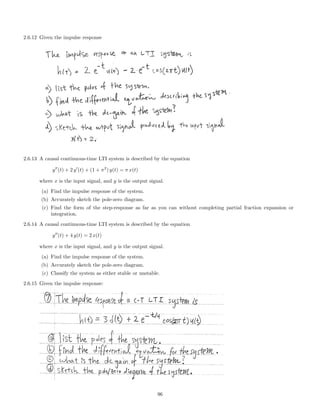 2.6.12 Given the impulse response
The impulse response of an LTI system is
h(t) = 2 e^-t u(t) - 2 e^-t cos(2πt) u(t)
a) list the poles of the system.
b) find the differential equation describing the system.
c) what is the dc-gain of the system?
d) sketch the output signal produced by the input signal
x(t) = 2.
2.6.13 A causal continuous-time LTI system is described by the equation
y''(t) + 2 y'(t) + (1 + π²) y(t) = π x(t)
where x is the input signal, and y is the output signal.
(a) Find the impulse response of the system.
(b) Accurately sketch the pole-zero diagram.
(c) Find the form of the step-response as far as you can without completing partial fraction expansion or
integration.
2.6.14 A causal continuous-time LTI system is described by the equation
y''(t) + 4 y(t) = 2 x(t)
where x is the input signal, and y is the output signal.
(a) Find the impulse response of the system.
(b) Accurately sketch the pole-zero diagram.
(c) Classify the system as either stable or unstable.
2.6.15 Given the impulse response:
⑦ The impulse response of a C-T LTI system is
h(t) = 3 δ(t) + 2 e^-t/4 cos(2πt) u(t)
ⓐ list the poles of the system.
ⓑ find the differential equation for the system.
ⓒ what is the dc gain of the system?
ⓓ sketch the pole/zero diagram of the system.
96